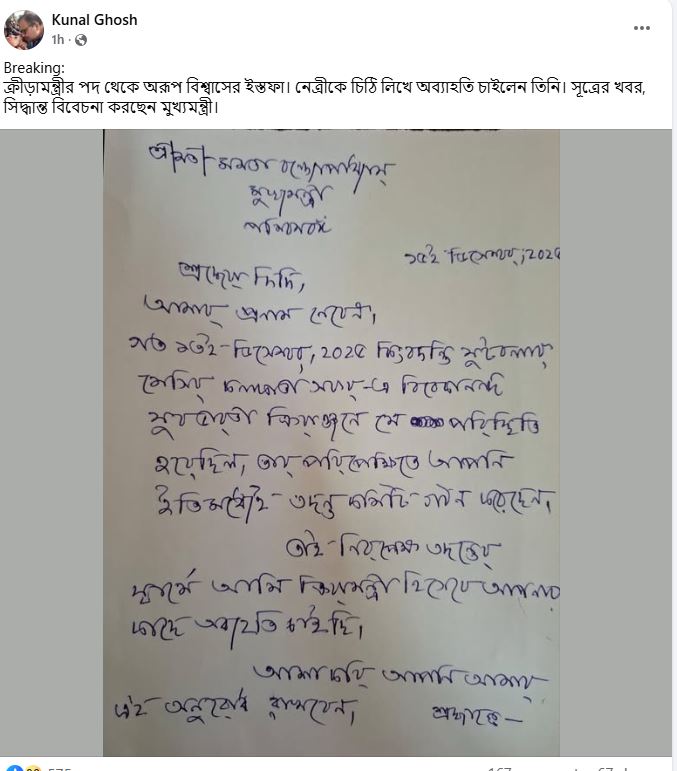 Kunal Ghosh
1h
Breaking:
ক্রীড়ামন্ত্রীর পদ থেকে অরূপ বিশ্বাসের ইস্তফা। নেত্রীকে চিঠি লিখে অব্যাহতি চাইলেন তিনি। সূত্রের খবর,
সিদ্ধান্ত বিবেচনা করছেন মুখ্যমন্ত্রী।
শ্রীমতী মমতা বন্দ্যোপাধ্যায়
মুখ্যমন্ত্রী
পশ্চিমবঙ্গ
১৫ই ডিসেম্বর, 202৫
শ্রদ্ধেয় দিদি,
আমার প্রনাম নেবেন।
গত ১৩ই ডিসেম্বর, 202৫ কিংবদন্তি ফুটবলার
মেসির কলকাতা সফর-এ বিবেকানন্দ
যুবভারতী ক্রিড়াঙ্গনে যে পরিস্থিতি
হয়েছিল, তার পরিপ্রেক্ষিতে আপনি
ইতিমধ্যেই তদন্ত কমিটি গঠন করেছেন।
তাই নিরপেক্ষ তদন্তের
স্বার্থে আমি ক্রিড়ামন্ত্রী হিসেবে আপনার
কাছে অব্যহতি চাইছি।
আশা করি আপনি আমার
এই অনুরোধ রাখবেন।
শ্রদ্ধান্তে—
575